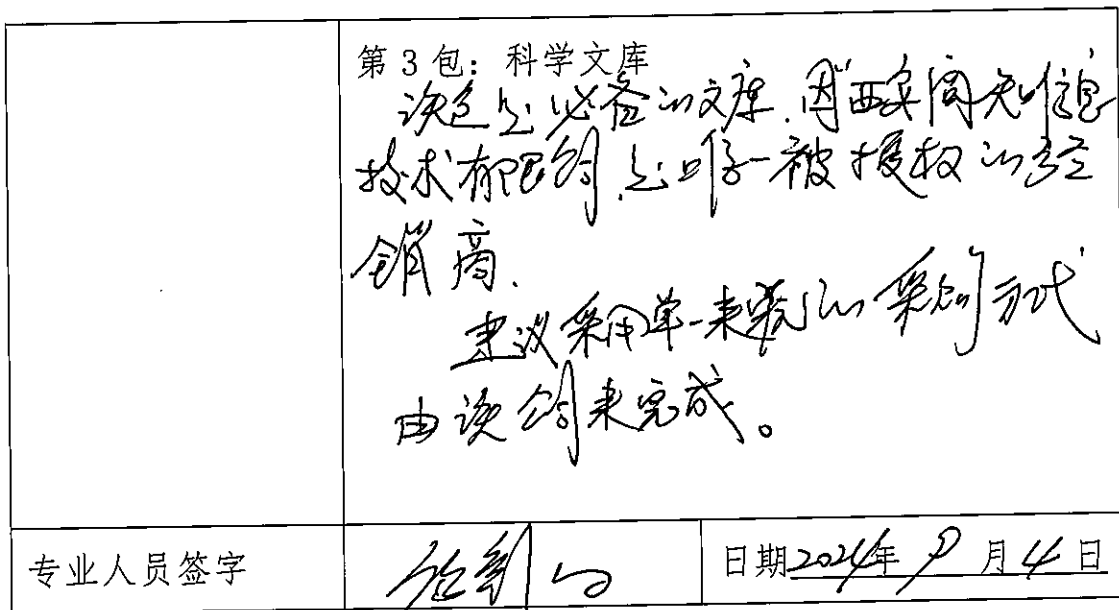 第 3 包：科学文库
该包是必备的文库，因西安闻知信息
技术有限公司，是唯一被授权的经
销商．
建议采用单一来源的采购方式
由该公司来完成。
专业人员签字
日期2024年 9 月 4 日